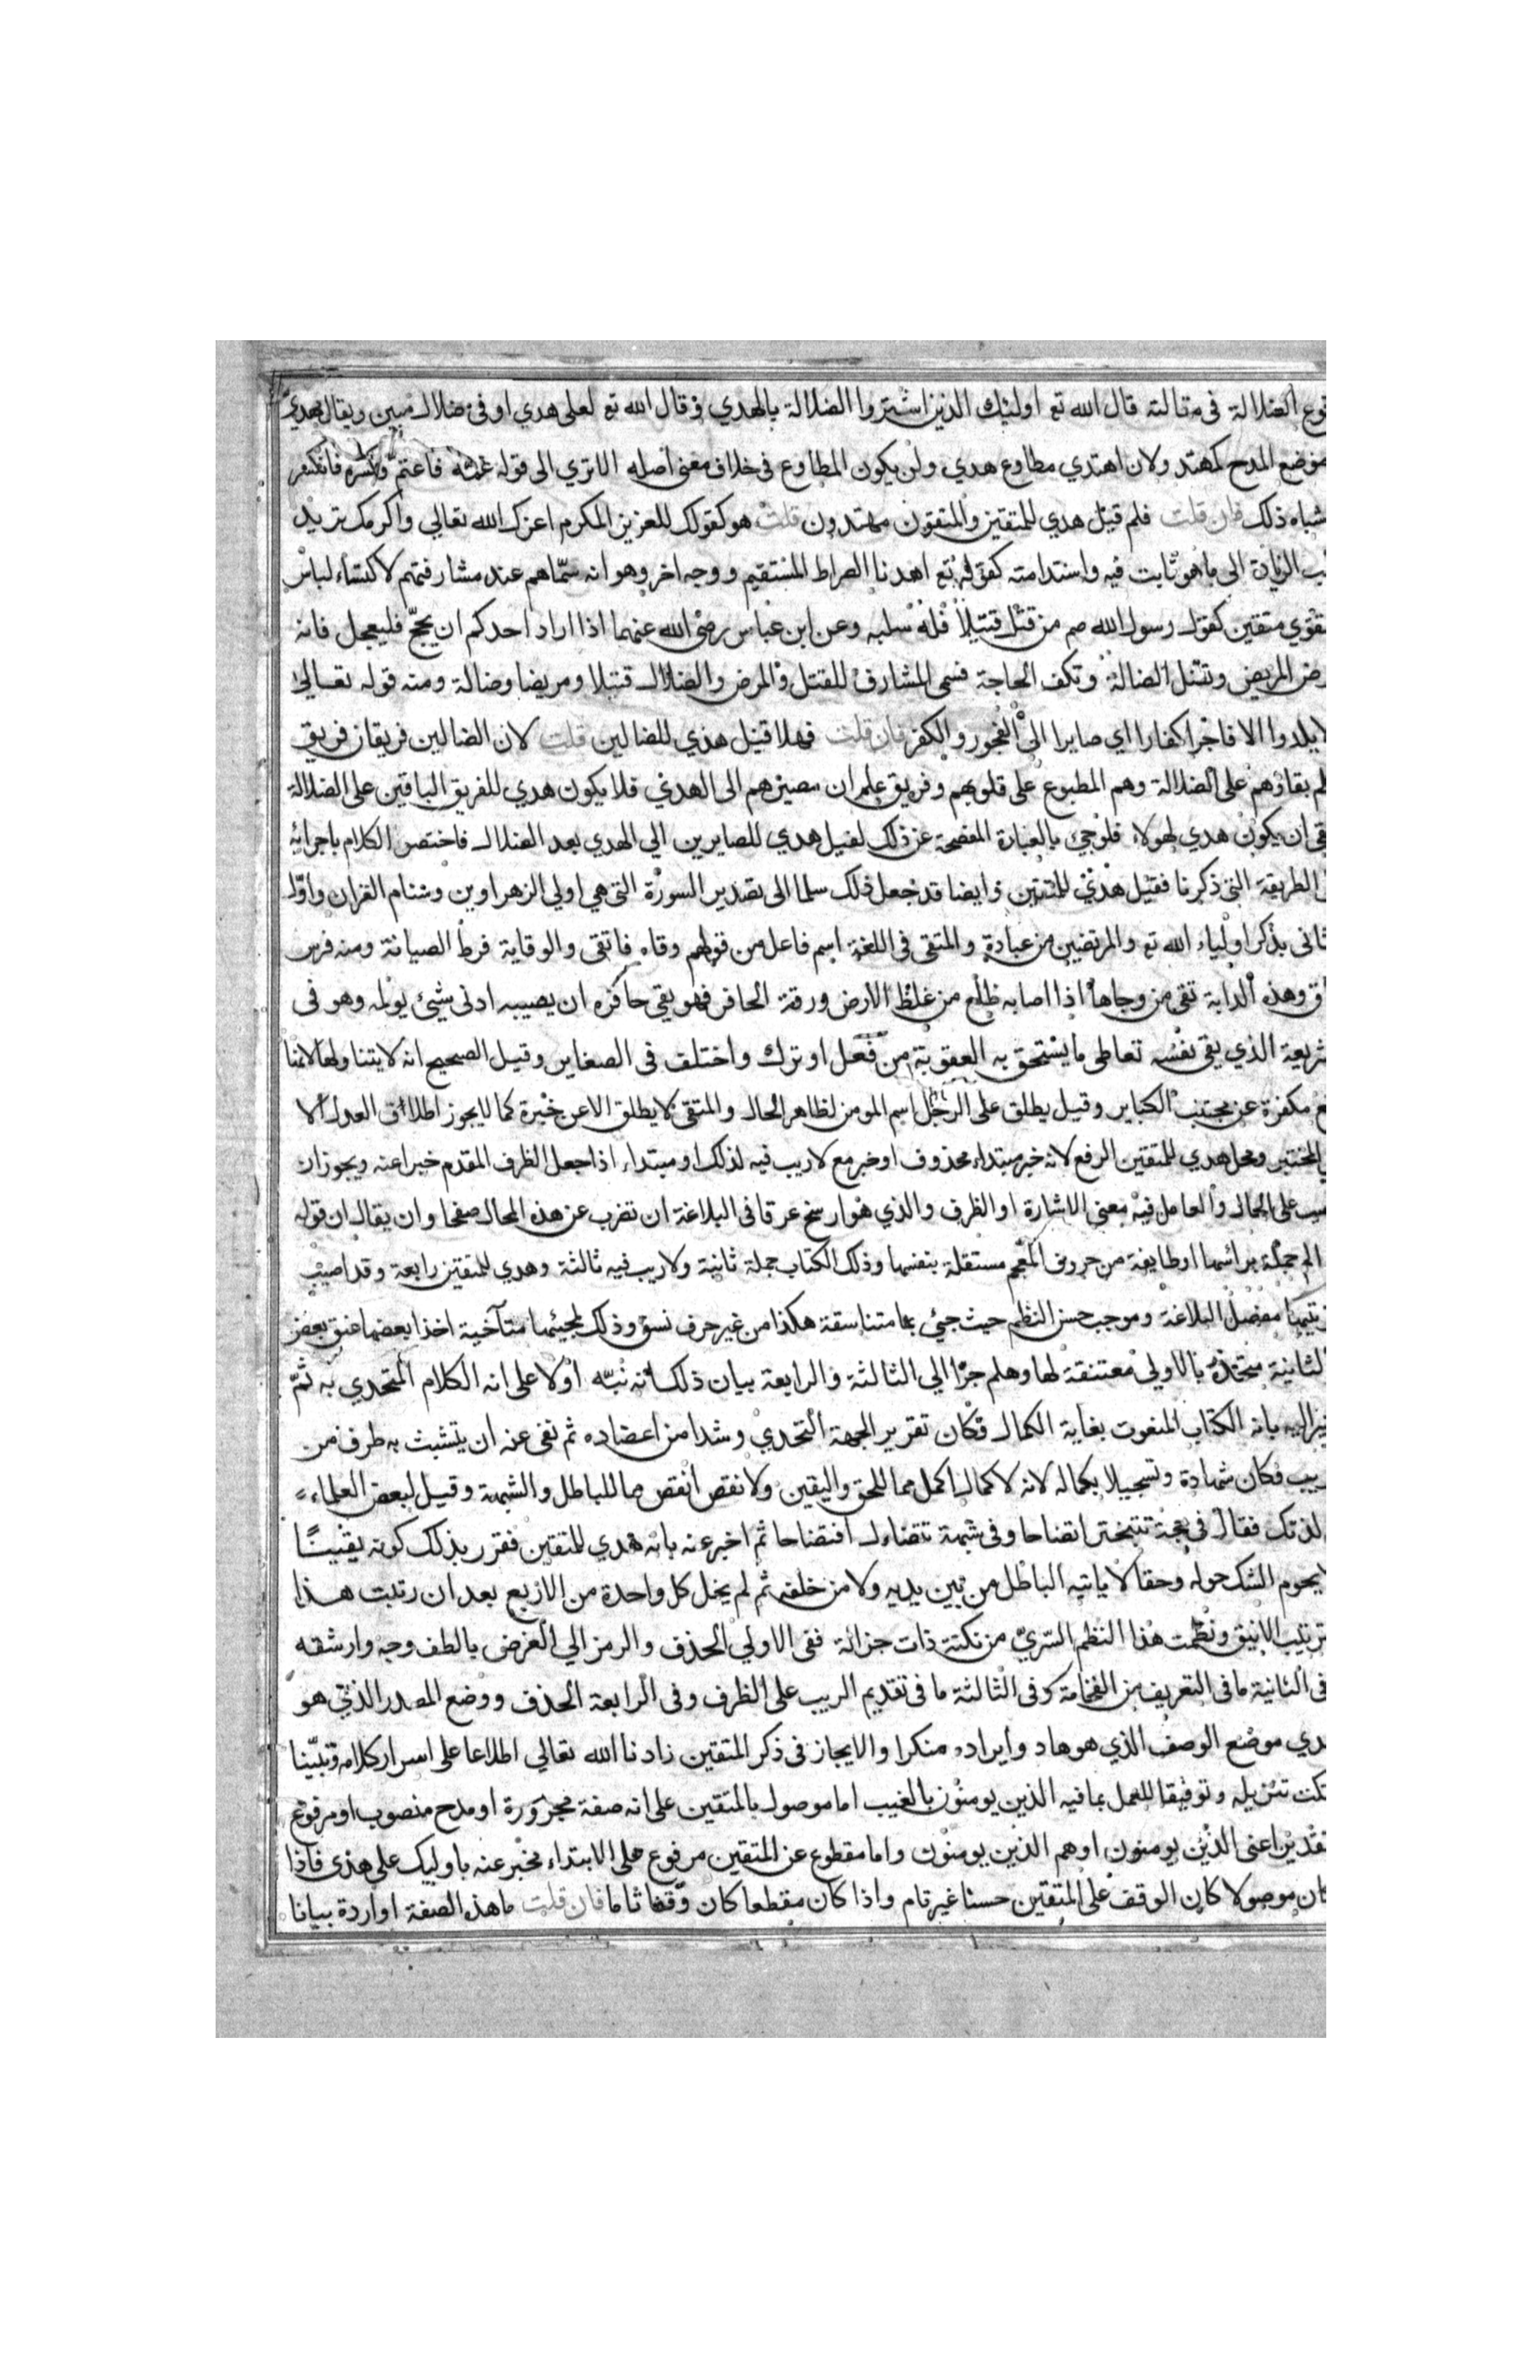 قوع الضلالة فى مقالته قال الله تع اوليئك الذين اشتروا الضلالة بالهدي وقال الله تع لعلى هدي او فى ضلال مبين ويقال مهدي
موضع المدح كمهتد ولان اهتدي مطاوع هدي ولن يكون المطاوع فى خلاف معنى اصله الاتري الى قوله غمّه فاعتمّ وكسره فانكسر
شباه ذلك فان قلت فلم قيل هدي للمتقين والمتقون مهتدون قلت هو كقولك للعزيز المكرم اعزك الله تعالي واكرمك تريد
ب الزيادة الى ما هو ثابت فيه واستدامته كقوله تع اهدنا الصراط المستقيم ووجه اخر وهو انه سمّاهم عند مشارفتهم لاكتساء لباس
تقوي متقين كقول رسول الله صم من قتل قتيلا فله سلبه وعن ابن عباس رضى الله عنهما اذا اراد احدكم ان يحجّ فليعجل فانه
رض المريض وتضل الضالة وتكف الحاجة فسمى المشارف للقتل والمرض والضلال قتيلا ومريضا وضالة ومنه قوله تعالى
لا يلدوا الا فاجرا كفارا اي صايرا الى الفجور والكفر فان قلت فهلا قيل هدي للضالين قلت لان الضالين فريقان فريق
لم بقاؤهم على الضلالة وهم المطبوع على قلوبهم وفريق علم ان مصيرهم الى الهدي فلا يكون هدي للفريق الباقين على الضلالة
قى ان يكون هدي لهولاء فلو جئ بالعبارة المفصحة عن ذلك لقيل هدي للصايرين الي الهدي بعد الضلال فاختصر الكلام باجرائه
الطريقة التى ذكرنا فقيل هدي للمتقين وايضا قد جعل ذلك سلما الى تصدير السورة التى هي اولي الزهراوين وسنام القران واوّل
ثانى بذكر اولياء الله تع والمرتضين من عباده والمتقى فى اللغة اسم فاعل من قولهم وقاه فاتقى والوقاية فرط الصيانة ومنه فرس
اق وهذه الدابة تقى من وجاها اذا اصابه ظلع من غلظ الارض ورقة الحافر فهو يقي حافره ان يصيبه ادنى شئ يولمه وهو فى
شريعة الذي يقى نفسه تعاطى ما يستحق به العقوبة من فعل او ترك واختلف فى الصغاير وقيل الصحيح انه لا يتناولها لانها
ع مكفرة عن مجتنب الكباير وقيل يطلق على الرجل اسم المومن لظاهر الحال والمتقى لا يطلق الا عن خبرة كما لا يجوز اطلاق العدل الا
المختبر ومحل هدي للمتقين الرفع لانه خبر مبتداء محذوف او خبر مع لا ريب فيه لذلك او مبتداء اذا جعل الظرف المقدم خبرا عنه ويجوز ان
صب على الحال والعامل فيه معنى الاشارة او الظرف والذي هو ارسخ عرقا فى البلاغة ان تضرب عن هذه المحال صفحا وان يقال ان قوله
الم جملة براسها او طايفة من حروف المعجم مستقلة بنفسها وذلك الكتاب جملة ثانية ولا ريب فيه ثالثة وهدي للمتقين رابعة وقد اصيب
رتيبها مفصل البلاغة وموجب حسن النظم حيث جئي بها متناسقة هكذا من غير حرف نسق وذلك لمجيئها متآخية اخذا بعضها عنق بعض
لثانية متحدة بالاولي معتنقة لها وهلم جرّا الي الثالثة والرابعة بيان ذلك انه نبّه اولا على انه الكلام المتحدي به ثمّ
اليه بانه الكتاب المنعوت بغاية الكمال فكان تقرير الجهة التحدي وشدا من اعضاده ثم نفى عنه ان يتشبث به طرف من
ريب فكان شهادة وتسجيلا بكماله لانه لا كمال اكمل مما للحق واليقين ولا نقص انقص مما للباطل والشبهة وقيل لبعض العلماء
لذتك فقال فى حجة تتبختر اتضاحا وفى شبهة تتضاءل افتضاحا ثم اخبر عنه بانه هدي للمتقين فقرر بذلك كونه يقينًا
لا يحوم الشك حوله وحقا لا ياتيه الباطل من بين يديه ولا من خلفه ثم لم يخل كل واحدة من الاربع بعد ان رتبت هذا
ترتيب الانيق ونظمت هذا النظم السّريّ من نكتة ذات جزالة ففى الاولي الحذف والرمز الي الغرض بالطف وجه وارشقه
فى الثانية ما فى التعريف من الفخامة وفى الثالثة ما فى تقديم الريب على الظرف وفى الرابعة الحذف ووضع المصدر الذي هو
دي موضع الوصف الذي هو هاد وايراده منكرا والايجاز فى ذكر المتقين زادنا الله تعالي اطلاعا على اسرار كلامه وتبيّنا
نكت تنزيله وتوفيقا للعمل بما فيه الذين يومنون بالغيب اما موصول بالمتقين على انه صفة مجرورة او مدح منصوب او مرفوع
تقدير اعنى الذين يومنون او هم الذين يومنون واما مقطوع عن المتقين مرفوع على الابتداء مخبر عنه باوليك على هدى فاذا
كان موصولا كان الوقف على المتقين حسنا غير تام واذا كان مقطعا كان وقفا تاما فان قلت ما هذه الصفة اواردة بيانا